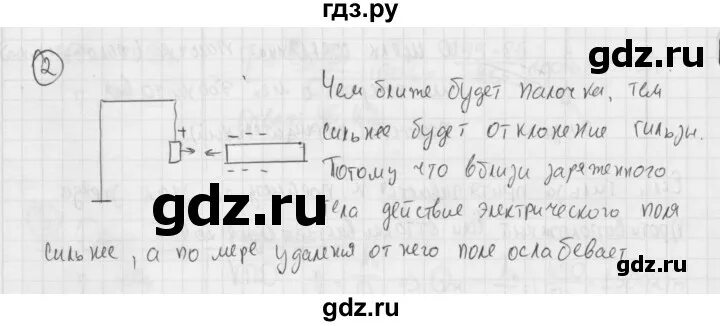 гдз.ру
2
Чем ближе будет палочка, тем
сильнее будет отклонение гильзы.
Потому что вблизи заряженного
тела действие электрического поля
сильнее, а по мере удаления от него поле ослабевает
+
- - - -
- - -
gdz.ru
gdz.ru
gdz.ru
gdz.ru
gdz.ru
gdz.ru